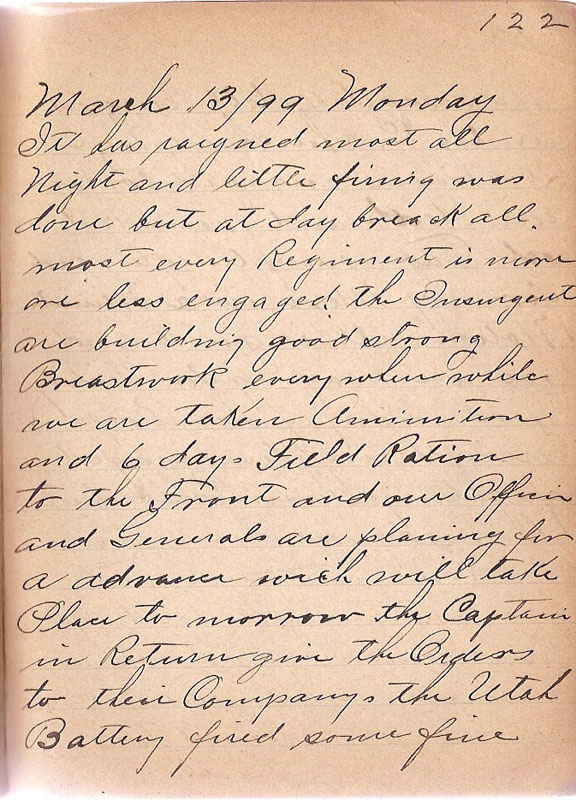 122
March 13/99 Monday
It has raigned most all
Night and little firing was
done but at day break all.
most every Regiment is more
ore less engaged. the Insurgent
are building good strong
Breastwork every wher while
we are taken Amimition
and 6 days Field Ration
to the Front and our Officir
and Generals are planing for
a advance wich will take
Place to morrow the Captain
in Return give the Orders
to their Companys the Utah
Battery fired some fine